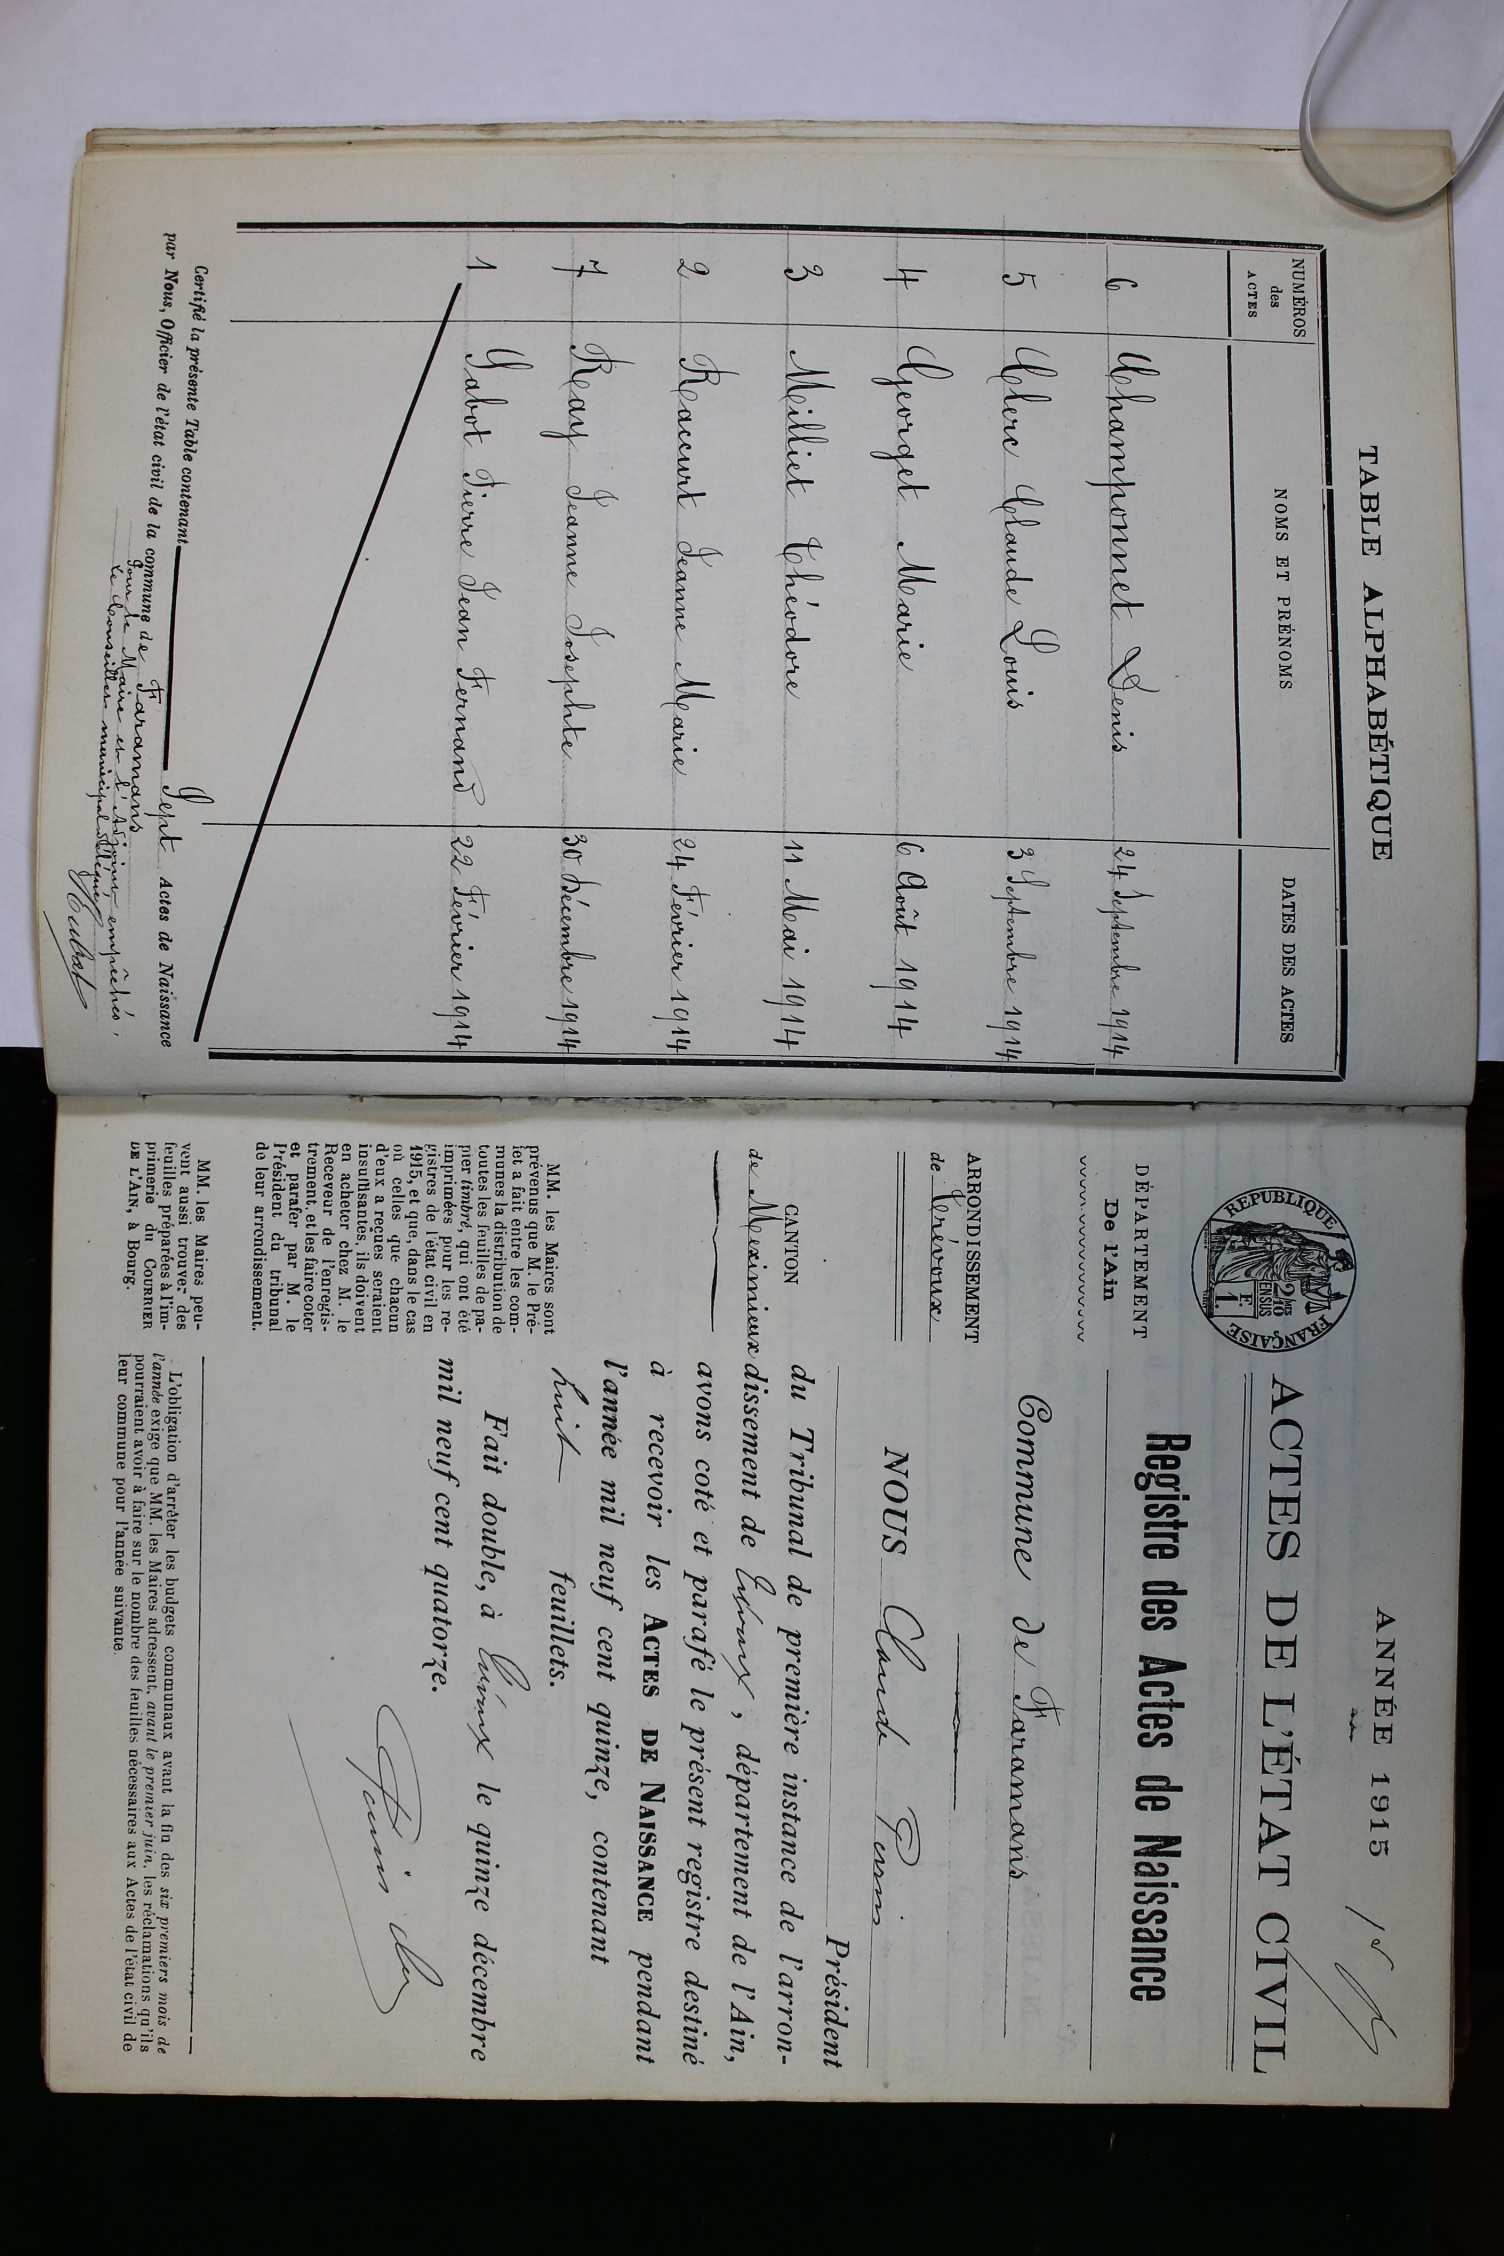 TABLE ALPHABÉTIQUE
NUMÉROS
des
ACTES
NOMS ET PRÉNOMS
DATES DES ACTES
6 Champonnet Denis 24 Septembre 1914
5 Clerc Claude Louis 3 Septembre 1914
4 Georget Marie 6 Août 1914
3 Milliet Théodore 11 Mai 1914
2 Raccurt Jeanne Marie 24 Février 1914
7 Ray Jeanne Josephte 30 Décembre 1914
1 Sabot Pierre Jean Fernand 22 Février 1914
Certifié la présente Table contenant Sept Actes de Naissance
par Nous, Officier de l'état civil de la commune de Faramans
Pour le Maire et l'Adjoint empêchés,
le Conseiller municipal délégué
ANNÉE 1915
ACTES DE L'ÉTAT CIVIL
RÉPUBLIQUE FRANÇAISE
2 10MES
EN SUS
1 F.
DÉPARTEMENT
De l'Ain
Registre des Actes de Naissance
Commune de Faramans
ARRONDISSEMENT
de Trévoux
CANTON
de Meximieux
NOUS Claude Perrin
Président
du Tribunal de première instance de l'arron-
dissement de Trévoux, département de l'Ain,
avons coté et parafé le présent registre destiné
à recevoir les ACTES DE NAISSANCE pendant
l'année mil neuf cent quinze, contenant
huit feuillets.
Fait double, à Trévoux le quinze décembre
mil neuf cent quatorze.
MM. les Maires sont
prévenus que M. le Pré-
fet a fait entre les com-
munes la distribution de
toutes les feuilles de pa-
pier timbré, qui ont été
imprimées pour les re-
gistres de l'état civil en
1915, et que, dans le cas
où celles que chacun
d'eux a reçues seraient
insuffisantes, ils doivent
en acheter chez M. le
Receveur de l'enregis-
trement, et les faire coter
et parafer par M. le
Président du tribunal
de leur arrondissement.
MM. les Maires peu-
vent aussi trouver des
feuilles préparées à l'im-
primerie du COURRIER
DE L'AIN, à Bourg.
L'obligation d'arrêter les budgets communaux avant la fin des six premiers mois de
l'année exige que MM. les Maires adressent, avant le premier juin, les réclamations qu'ils
pourraient avoir à faire sur le nombre des feuilles nécessaires aux Actes de l'état civil de
leur commune pour l'année suivante.